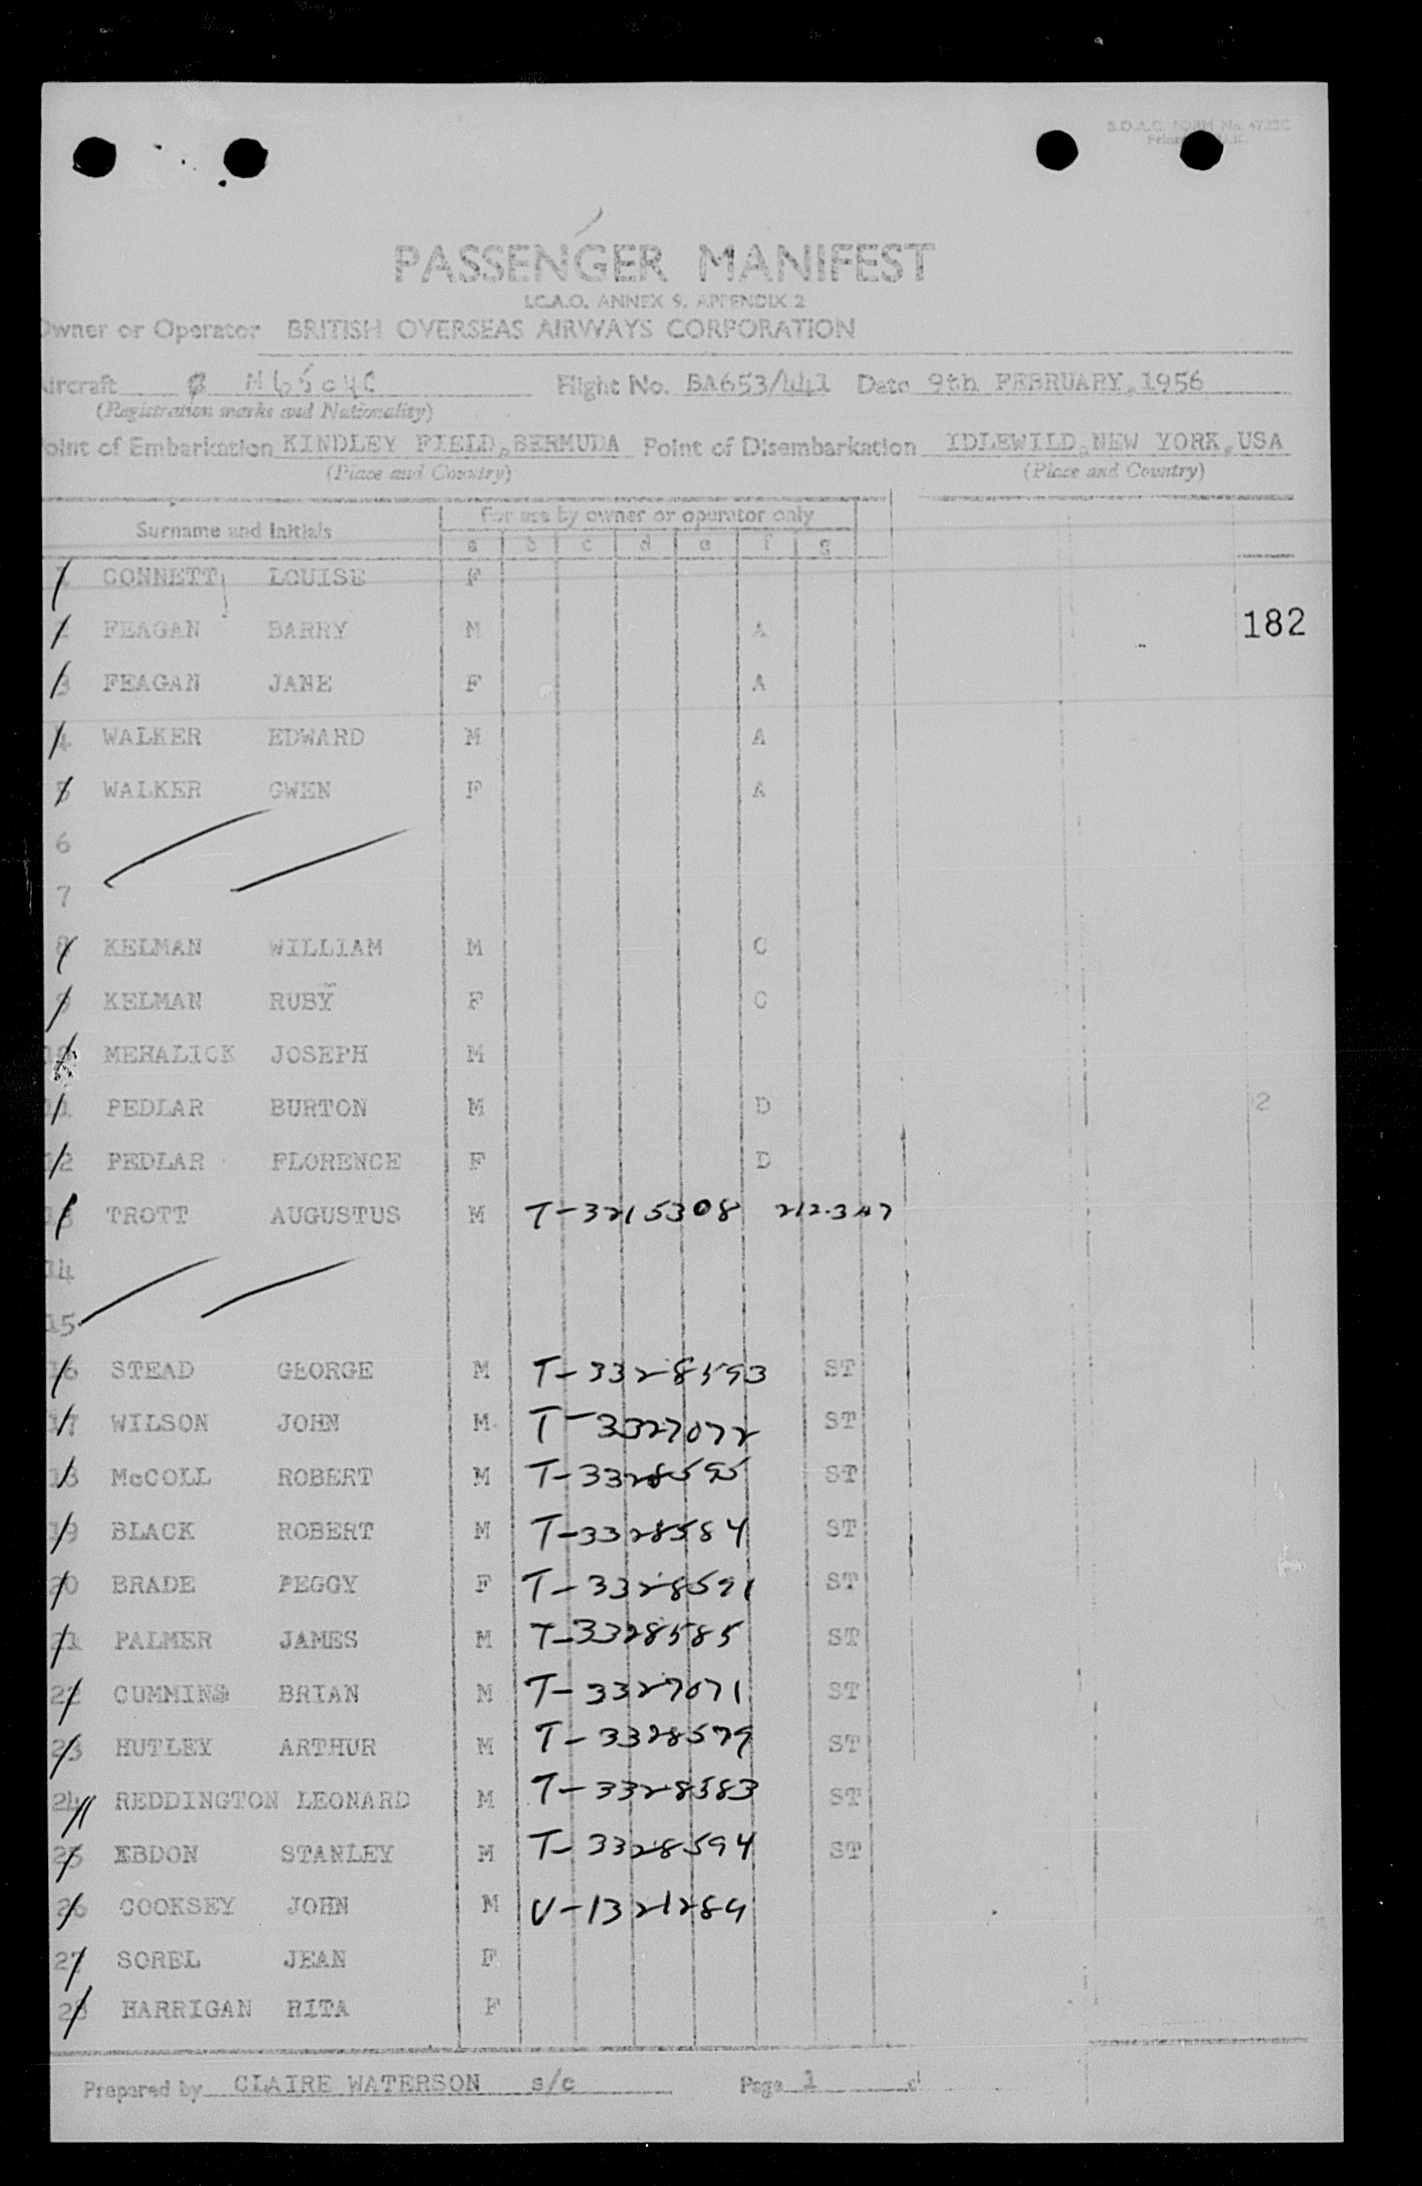 PASSENGER MANIFEST
I.C.A.O. ANNEX 9, APPENDIX 2
Owner or Operator BRITISH OVERSEAS AIRWAYS CORPORATION
Aircraft Flight No. BA653/441 Date 9th FEBRUARY, 1956
(Registration marks and Nationality)
Point of Embarkation KINDLEY FIELD, BERMUDA Point of Disembarkation IDLEWILD, NEW YORK, USA
(Place and Country) (Place and Country)
For use by owner or operator only
Surname and Initials
a b c d e f g
1 CONNETT LOUISE F
2 FEAGAN BARRY M A
182
3 FEAGAN JANE F A
4 WALKER EDWARD M A
5 WALKER GWEN F A
6
7
8 KELMAN WILLIAM M C
9 KELMAN RUBY F C
10 MEHALICK JOSEPH M
11 PEDLAR BURTON M D 2
12 PEDLAR FLORENCE F D
13 TROTT AUGUSTUS M T-3215308
14
15
16 STEAD GEORGE M T-3328593 ST
17 WILSON JOHN M T-3327072 ST
18 McCOLL ROBERT M T-3328595 ST
19 BLACK ROBERT M T-3328584 ST
20 BRADE PEGGY F T-3328591 ST
21 PALMER JAMES M T-3328585 ST
22 CUMMINS BRIAN M T-3327071 ST
23 HUTLEY ARTHUR M T-3328579 ST
24 REDDINGTON LEONARD M T-3328583 ST
25 EBDON STANLEY M T-3328594 ST
26 COOKSEY JOHN M V-1321289
27 SOREL JEAN F
28 HARRIGAN RITA F
Prepared by CLAIRE WATERSON s/c Page 1 of